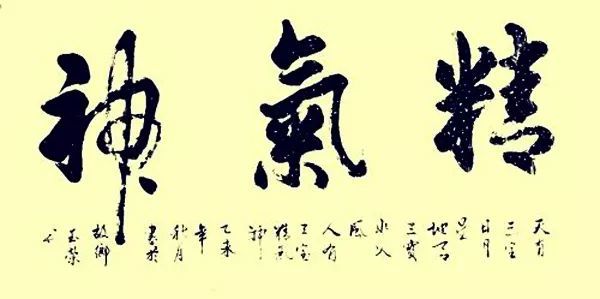 精氣神
天有
三宝
日月
星
地有
三寳
水火
風
人有
三宝
精氣
神
乙未
年
秋月
書於
故鄉
玉榮